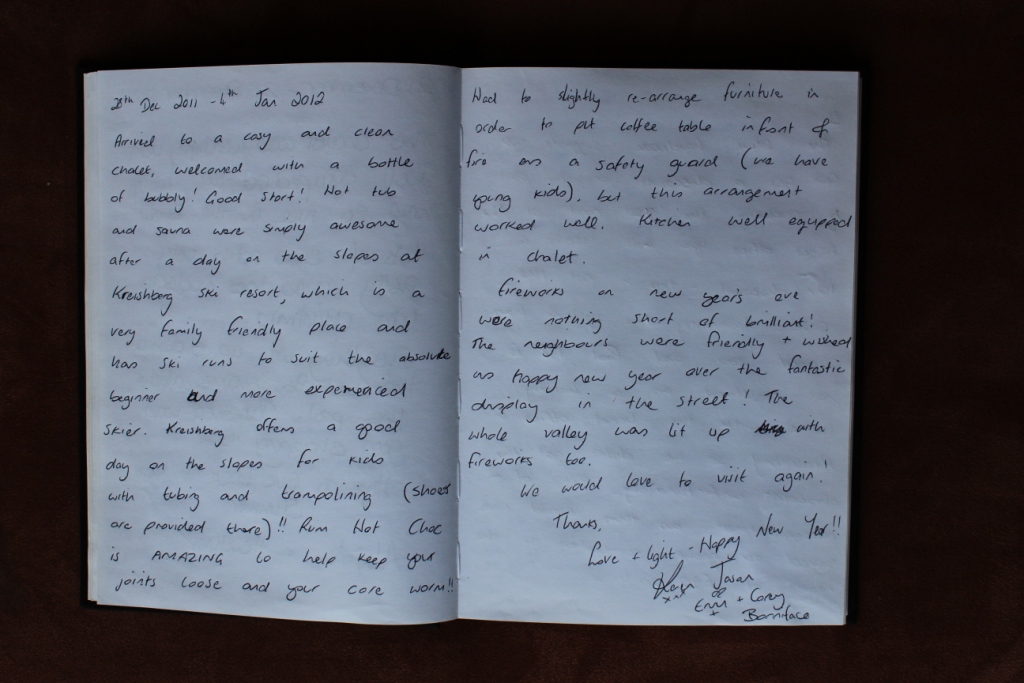 28th Dec 2011 - 4th Jan 2012
Arrived to a cosy and clean
chalet, welcomed with a bottle
of bubbly! Good start! Hot tub
and sauna were simply awesome
after a day on the slopes at
Kreishberg ski resort, which is a
very family friendly place and
has ski runs to suit the absolute
beginner and more experienced
skier. Kreishberg offers a good
day on the slopes for kids
with tubing and trampolining (shoes
are provided there)!! Rum Hot Choc
is AMAZING to help keep your
joints loose and your core warm!!
Had to slightly re-arrange furniture in
order to put coffee table infront of
fire as a safety guard (we have
young kids), but this arrangement
worked well. Kitchen well equipped
in chalet.
Fireworks on new year's eve
were nothing short of brilliant!
The neighbours were friendly + wished
us happy new year over the fantastic
display in the street! The
whole valley was lit up with
fireworks too.
We would love to visit again!
Thanks.
Love + light - Happy New Year!!
Jason
+ Corey
Bonniface